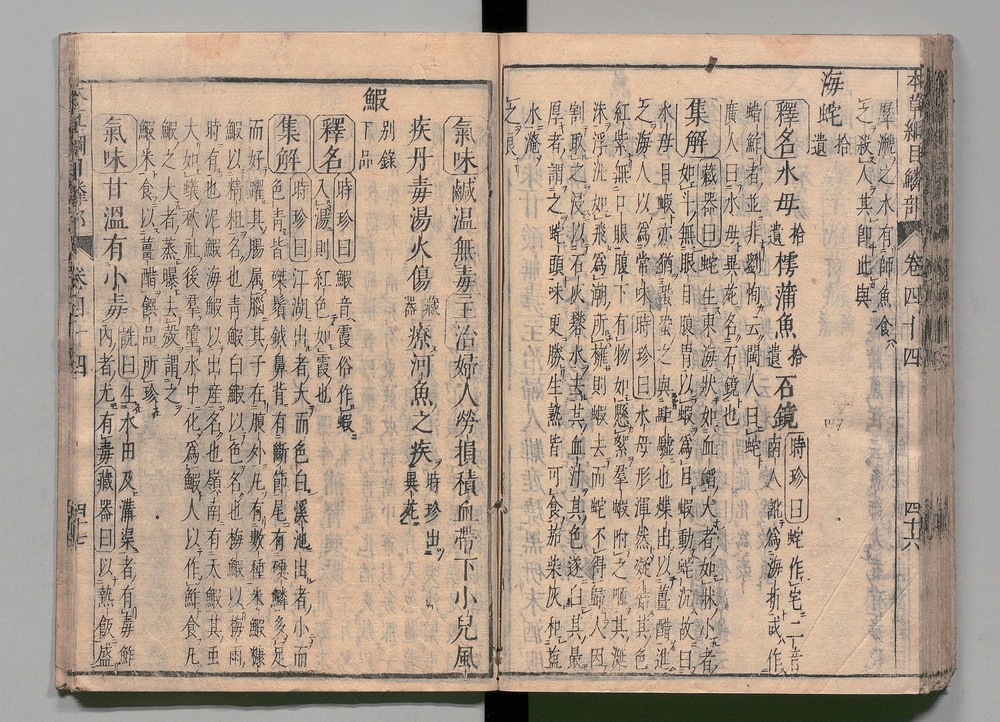 本草綱目鱗部 卷四十四 四十六
羣灑之水有師魚食
之殺人其即此與
海蛇拾遺
釋名水母拾遺樗蒲魚拾遺石鏡時珍曰蛇作宅二音南人訛爲海折或作
蜡鮓者並非劉恂云閩人曰蛇
廣人曰水母異苑名石鏡也
集解藏器曰蛇生東海狀如血䘓大者如牀小者
如斗無眼目腹胃以蝦爲目蝦動蛇沉故曰
水母目蝦亦猶蛩蛩之與駏驉也煠出以薑醋進
之海人以爲常味時珍曰水母形渾然凝結其色
紅紫無口眼腹下有物如懸絮羣蝦附之咂其涎
沫浮汎如飛爲潮所擁則蝦去而蛇不得歸人因
割取之浸以石灰礬水去其血汁其色遂白其最
厚者謂之蛇頭味更勝生熟皆可食茄柴灰和鹽
水淹
之良
氣味鹹溫無毒主治婦人勞損積血帶下小兒風
疾丹毒湯火傷藏器療河魚之疾時珍出異苑
鰕別錄下品
釋名時珍曰鰕音霞俗作蝦
入湯則紅色如霞也
集解時珍曰江湖出者大而色白溪池出者小而
色青皆磔鬚鉞鼻背有斷節尾有硬鱗多足
而好躍其腸屬腦其子在腹外凡有數種米鰕糠
鰕以精粗名也青鰕白鰕以色名也梅鰕以梅雨
時有也泥鰕海鰕以出產名也嶺南有天鰕其蟲
大如蟻秋社後羣墮水中化爲鰕人以作鮓食凡
鰕之大者蒸曝去殼謂之
鰕米食以薑醋饌品所珍
氣味甘溫有小毒詵曰生水田及溝渠者有毒鮓
內者尤有毒藏器曰以熱飯盛
卷四十四 四十七